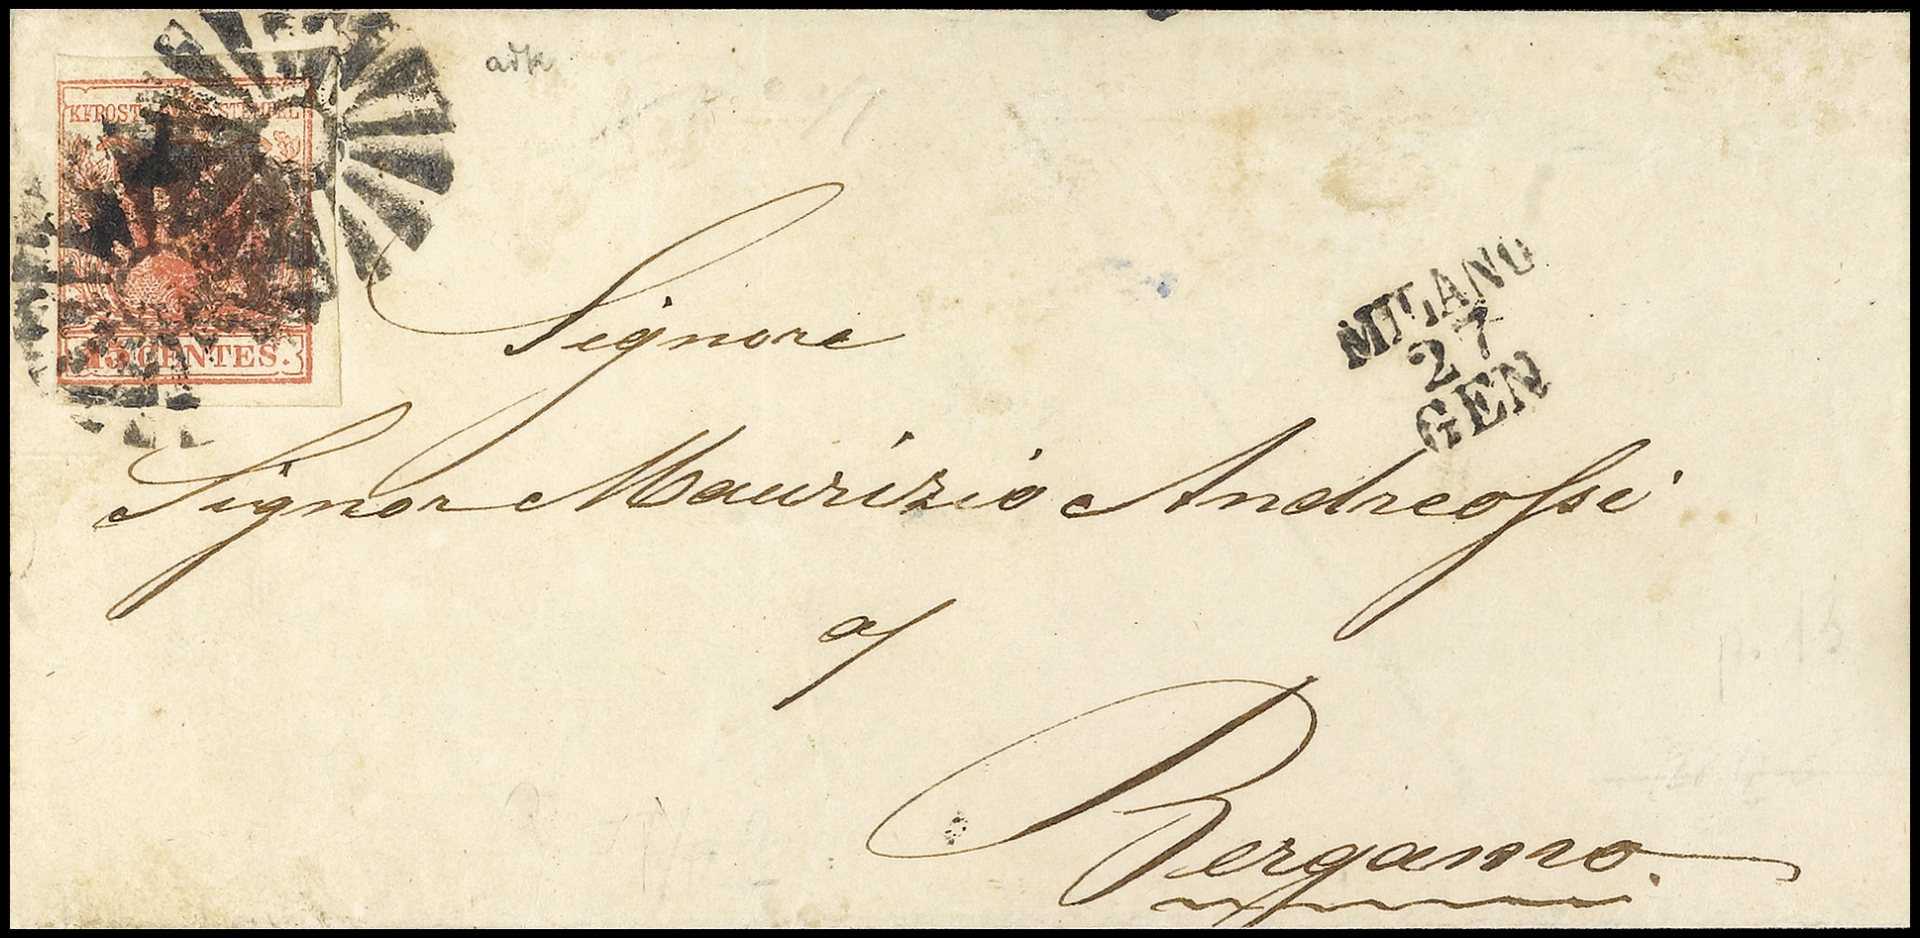 KKPOST STEMPEL
15 CENTES.
adk
MILANO
27
GEN
Signore
Signor Maurizio Andreossi
a/
Bergamo.